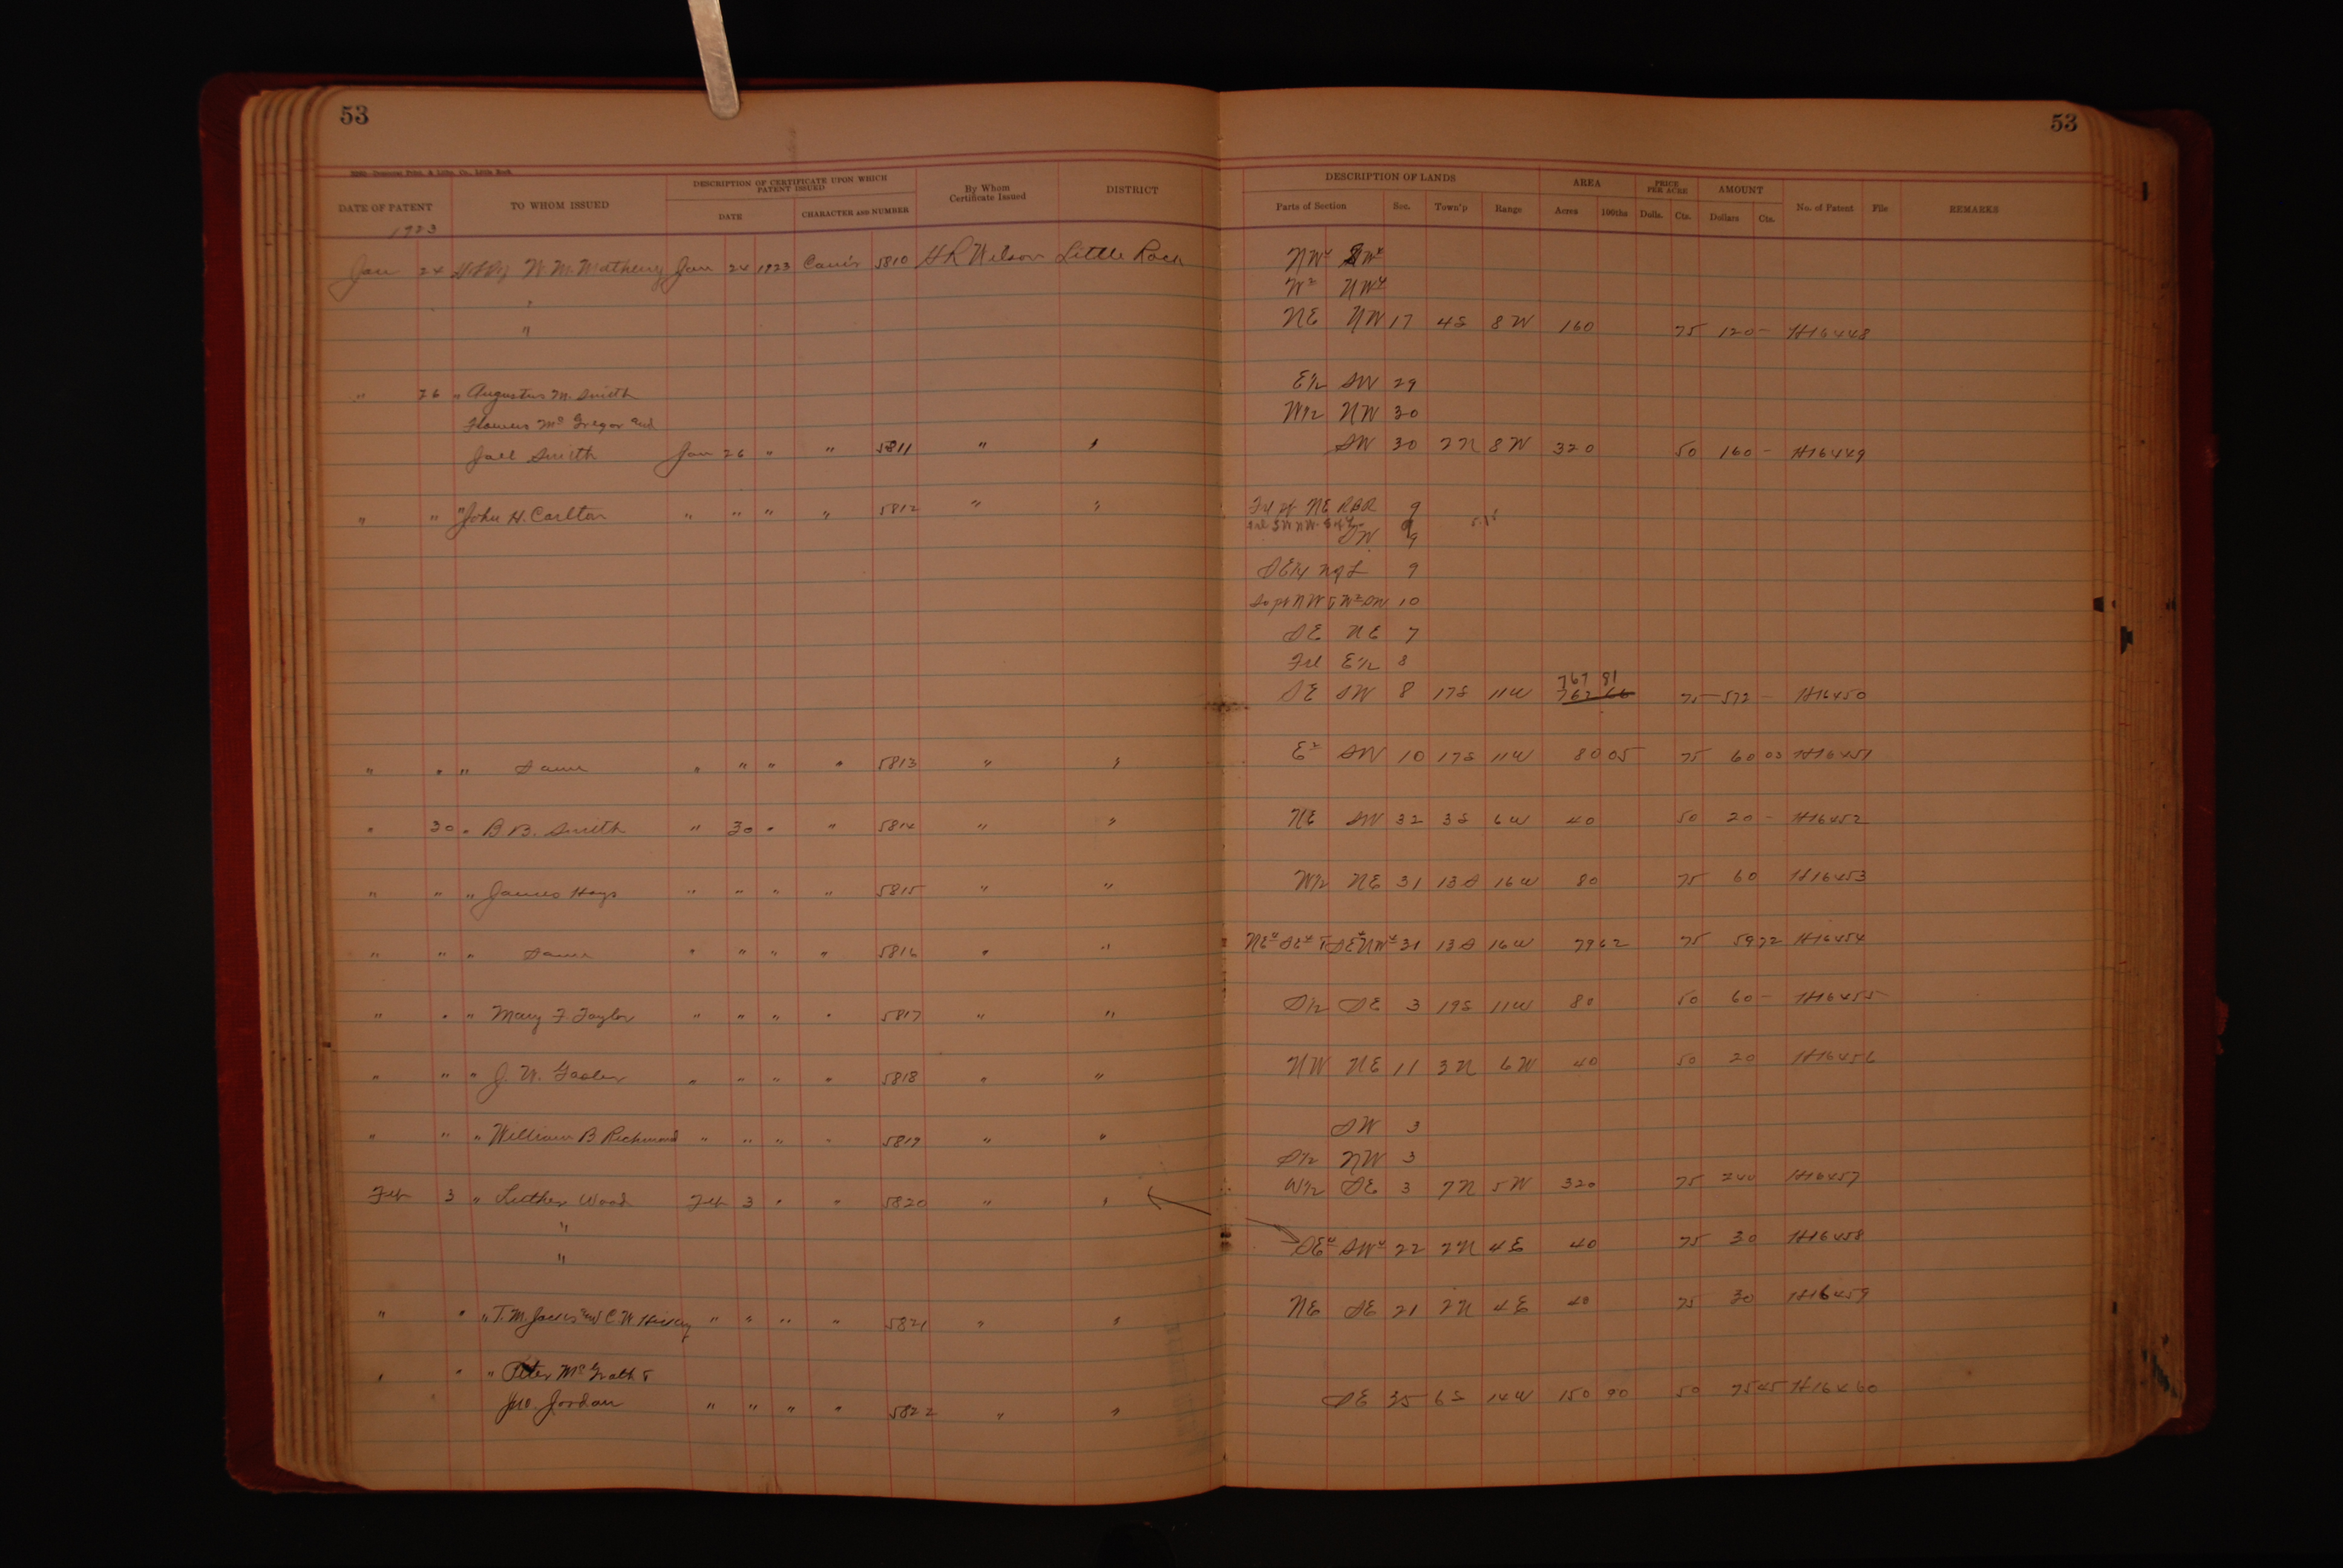 53
53
DATE OF PATENT TO WHOM ISSUED DESCRIPTION OF CERTIFICATE UPON WHICH PATENT ISSUED By Whom Certificate Issued DISTRICT DESCRIPTION OF LANDS AREA PRICE PER ACRE AMOUNT No. of Patent File REMARKS
DATE CHARACTER AND NUMBER Parts of Section Sec. Town'p Range Acres 100ths Dolls. Cts. Dollars Cts.
1923
Jan 24 W. M. Matheny Jan 24 1923 5810 H R Wilson Little Rock NW4 SW4
" W2 NW4
" NE NW 17 4S 8W 160 75 120 - H16448
" 26 " Augustus M. Smith E1/2 SW 29
McGregor and W1/2 NW 30
Joel Smith Jan 26 " " 5811 " " SW 30 2N 8W 320 50 160 - H16449
" " " John H. Carlton " " " " 5812 " " Frl pt NE RBR 9
SW 9
9
10
SE NE 7
Frl E1/2 8
767 91
SE SW 8 17S 11W 762 66 75 572 - H16450
" " " Same " " " " 5813 " " E2 SW 10 17S 11W 80 05 75 60 03 H16451
" 30 " B. B. Smith " 30 " " 5814 " " NE SW 32 3S 6W 40 50 20 - H16452
" " " James Hays " " " " 5815 " " W1/2 NE 31 13S 16W 80 75 60 H16453
" " " Same " " " " 5816 " " NE4 SE4 & SE4 NW4 31 13S 16W 79 62 75 59 72 H16454
" " " Mary F Taylor " " " " 5817 " " S1/2 SE 3 19S 11W 80 50 60 - H16455
" " " J. W. " " " " 5818 " " NW NE 11 3N 6W 40 50 20 H16456
" " " William B Richmond " " " " 5819 " " SW 3
S1/2 NW 3
W1/2 SE 3 7N 5W 320 75 240 H16457
Feb 3 " Luther Wood Feb 3 " " 5820 " "
" SE4 SW4 22 2N 4E 40 75 30 H16458
"
" " " T. M. Jacks and C. W. " " " " 5821 " " NE SE 21 2N 4E 40 75 30 H16459
" " " Peter McGrath &
Jno. Jordan " " " " 5822 " " SE 35 6S 14W 150 90 50 75 45 H16460